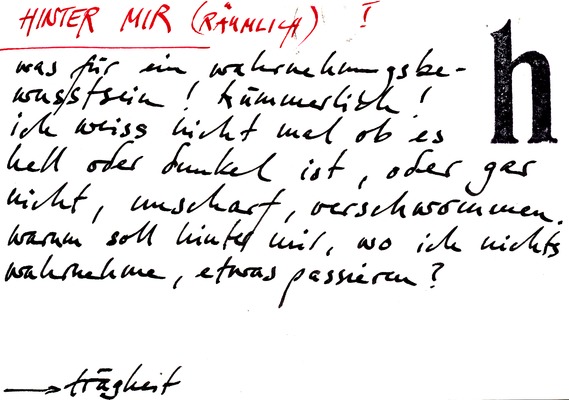 HINTER MIR (RÄUMLICH) I
h
was für ein wahrnehmungsbe-
wusstsein! kümmerlich!
ich weiss nicht mal ob es
hell oder dunkel ist, oder gar
nicht, unscharf, verschwommen.
warum soll hinter mir, wo ich nichts
wahrnehme, etwas passieren?
→ trägheit